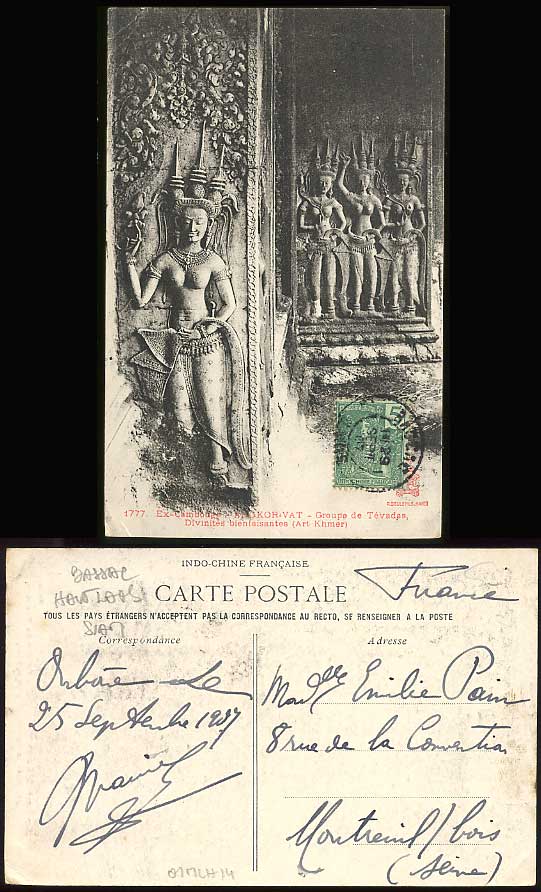 5
1777. Ex-Cambodge - ANGKOR-VAT - Groupe de Tévadas,
Divinités bienfaisantes (Art Khmer)
INDO-CHINE FRANÇAISE
CARTE POSTALE
France
TOUS LES PAYS ÉTRANGERS N'ACCEPTENT PAS LA CORRESPONDANCE AU RECTO, SE RENSEIGNER A LA POSTE
BASSAC
HAUT LAOS
SIAM
Correspondance
Adresse
le
25 Septembre 1907
Madlle Emilie Pain
8 rue de la Convention
Montreuil s/ bois
(Seine)